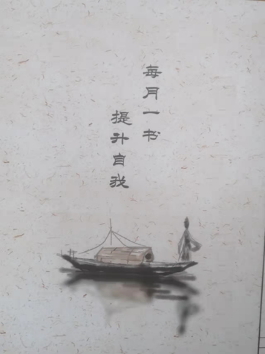 每月一书
提升自我